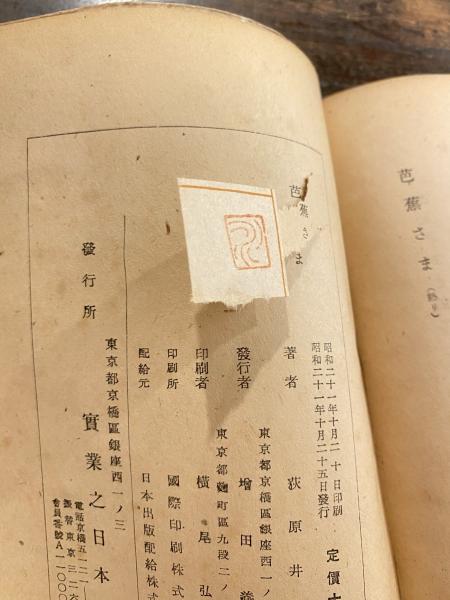 芭蕉さま（終り）
芭蕉さま
昭和二十一年十月二十日印刷
昭和二十一年十月二十五日發行
定價
著者 荻原井
東京都京橋區銀座西一ノ
發行者 增田義
東京都麴町區九段二ノ
印刷者 橫尾弘
印刷所 國際印刷株式
配給元 日本出版配給株式
東京都京橋區銀座西一ノ三
發行所 實業之日本
電話京橋五一二一
振替東京三二六
會員番號A一一〇〇